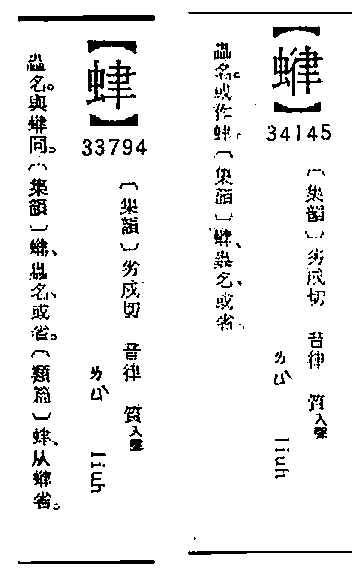 【】
33794
〔集韻〕劣戌切 音律 質入聲
ㄌㄩˋ liuh
蟲名。與同。〔集韻〕、蟲名、或省。〔類篇〕、从省。
【】
34145
〔集韻〕劣戌切 音律 質入聲
ㄌㄩˋ liuh
蟲名。或作。〔集韻〕、蟲名、或省。